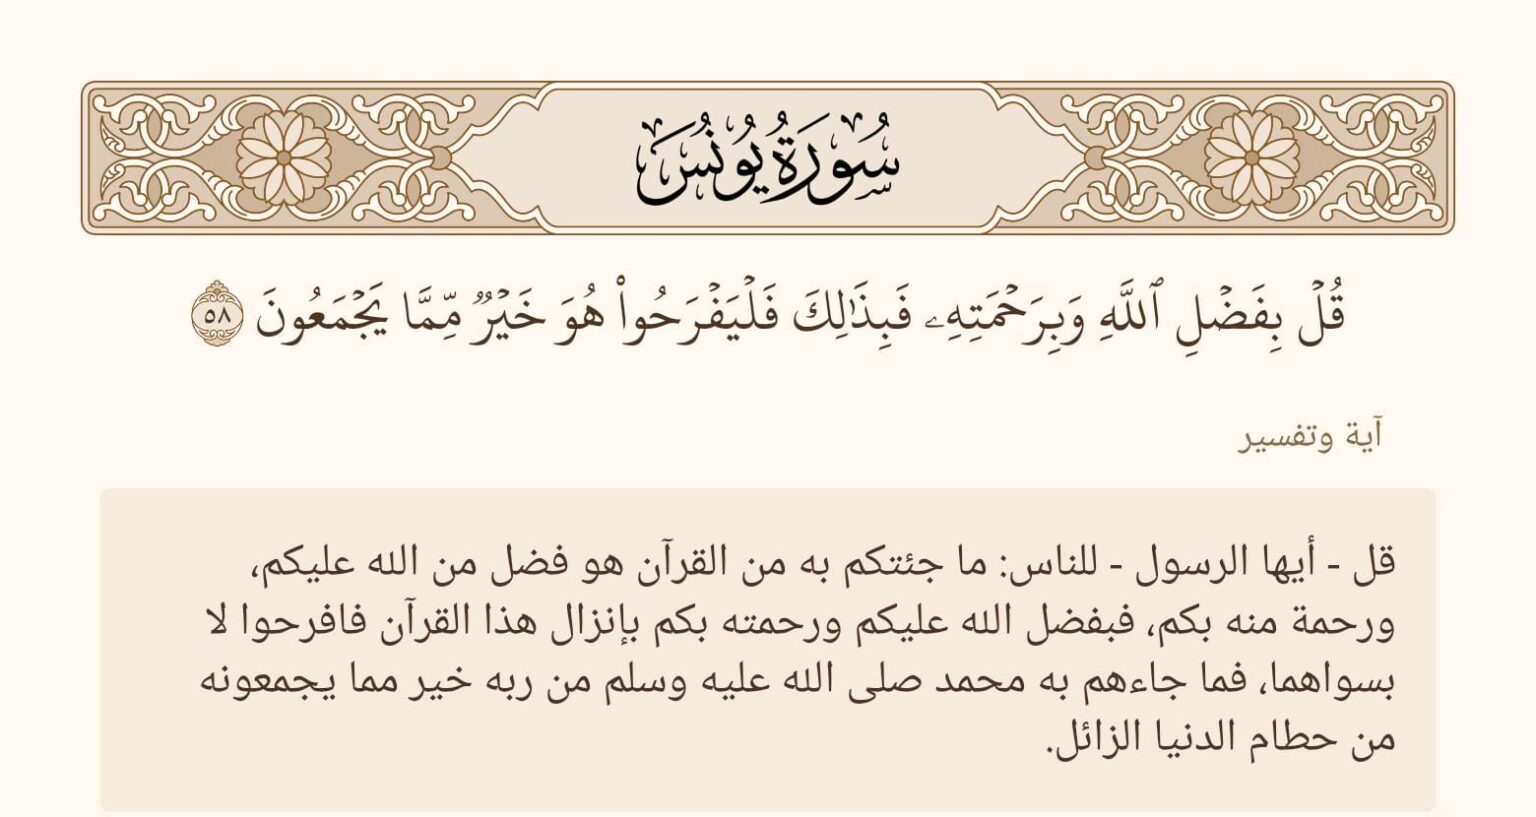 سُورَةُ يُونُسَ
قُلۡ بِفَضۡلِ ٱللَّهِ وَبِرَحۡمَتِهِۦ فَبِذَٰلِكَ فَلۡيَفۡرَحُواْ هُوَ خَيۡرٞ مِّمَّا يَجۡمَعُونَ ٥٨
آية وتفسير
قل - أيها الرسول - للناس: ما جئتكم به من القرآن هو فضل من الله عليكم،
ورحمة منه بكم، فبفضل الله عليكم ورحمته بكم بإنزال هذا القرآن فافرحوا لا
بسواهما، فما جاءهم به محمد صلى الله عليه وسلم من ربه خير مما يجمعونه
من حطام الدنيا الزائل.